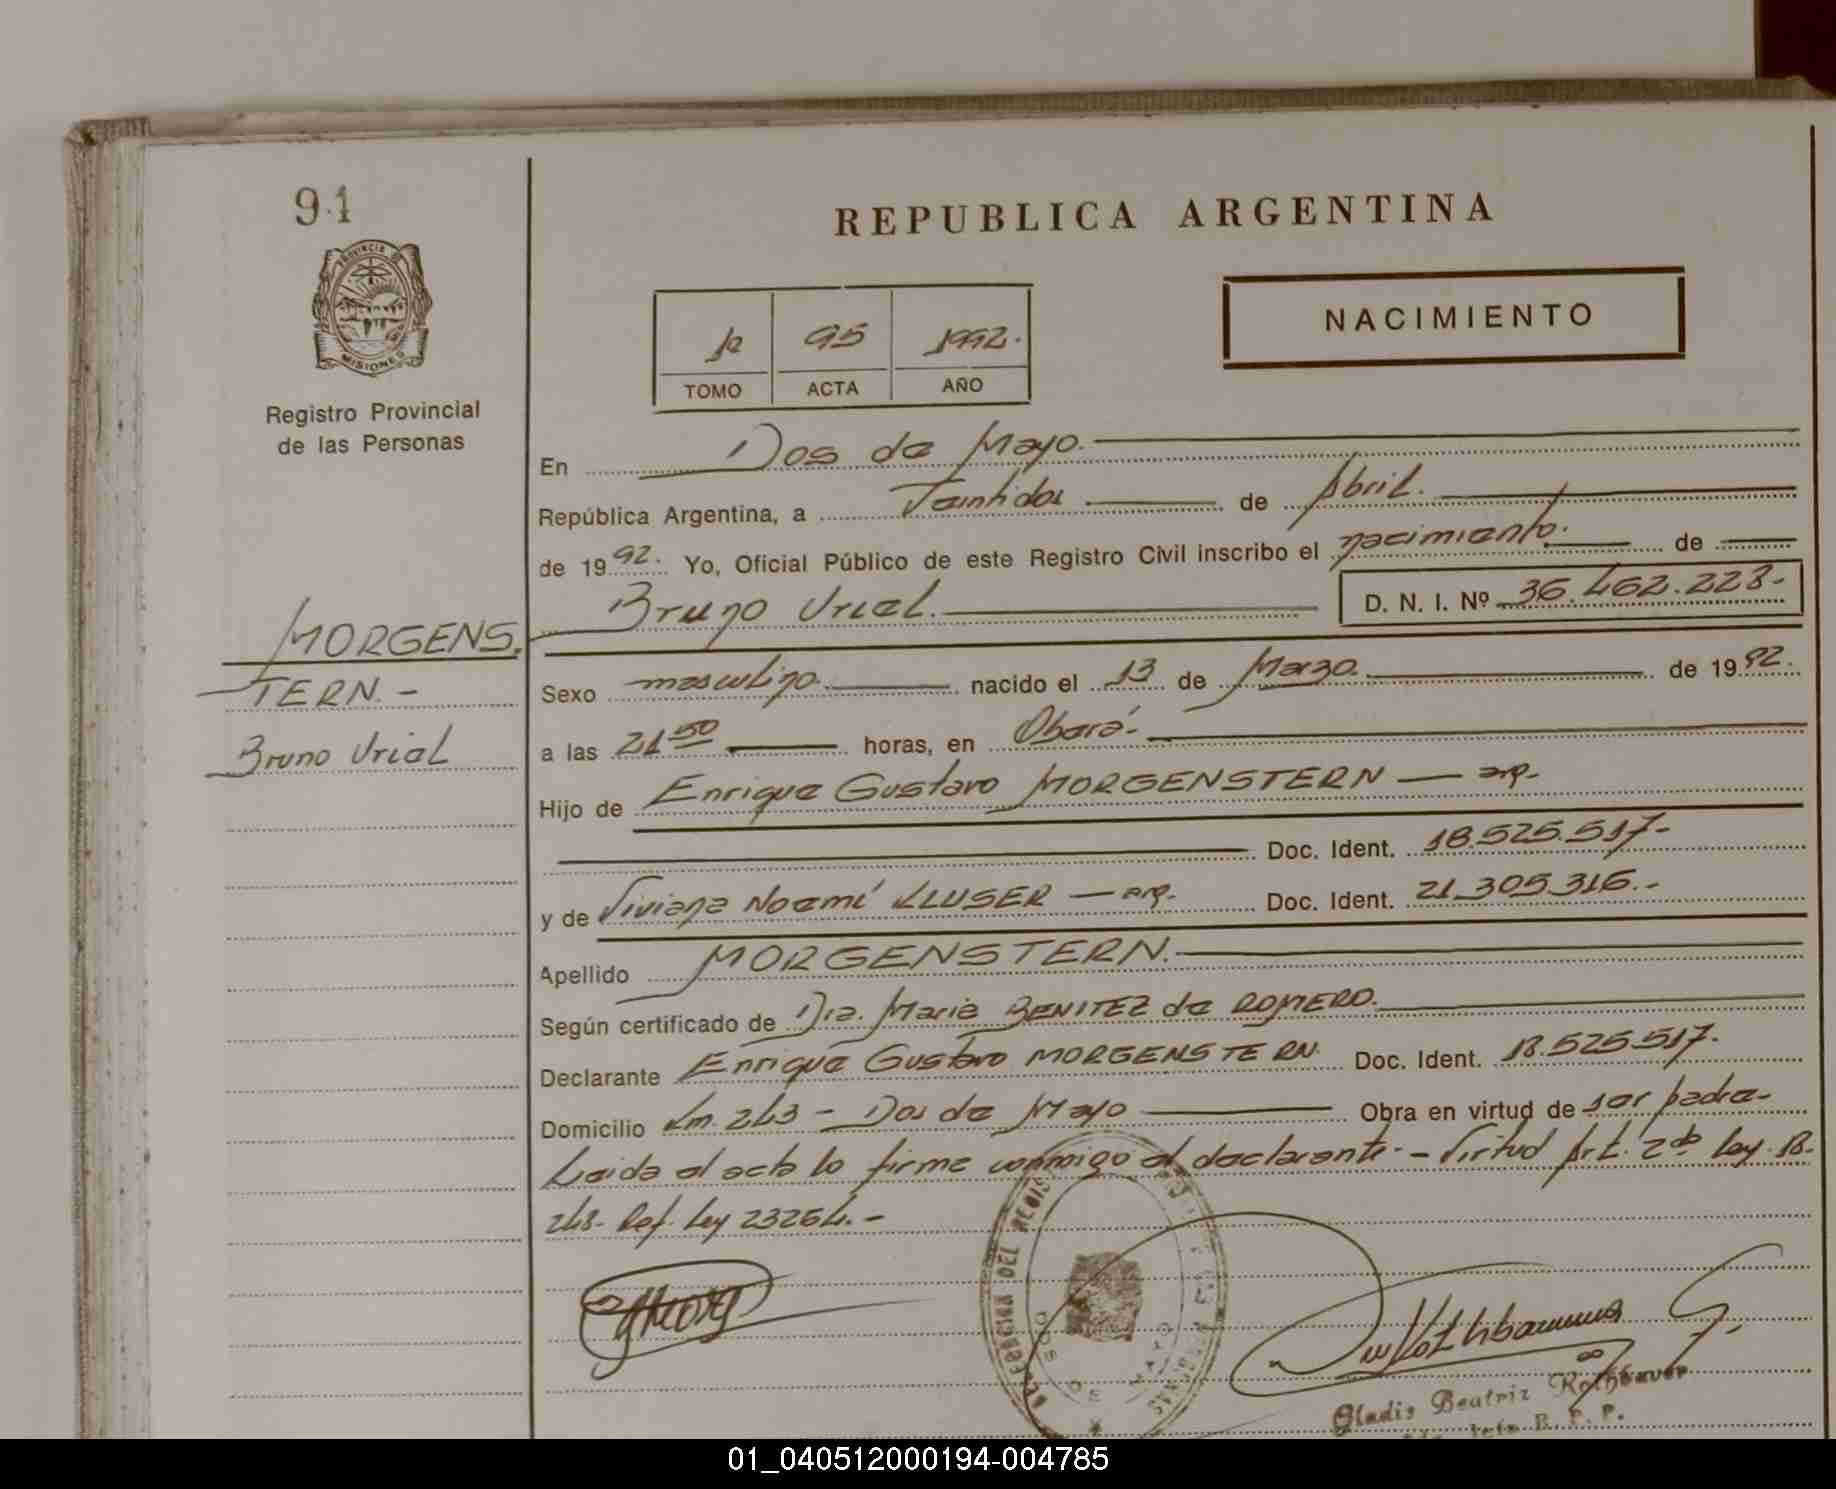 91
PROVINCIA DE
MISIONES
Registro Provincial
de las Personas
REPUBLICA ARGENTINA
NACIMIENTO
1º 95 1992.
TOMO ACTA AÑO
En Dos de Mayo.
República Argentina, a Veintidos de Abril.
de 1992. Yo, Oficial Público de este Registro Civil inscribo el nacimiento. de
Bruno Uriel. D. N. I. Nº 36.462.223.-
MORGENS.
TERN.-
Bruno Uriel
Sexo masculino. nacido el 13 de Marzo. de 1992.
a las 21 50 horas, en Oberá.
Hijo de Enrique Gustavo MORGENSTERN — arg.
Doc. Ident. 18.525.517.-
y de Viviana Noemí KLUSER — arg. Doc. Ident. 21.305.316.-
Apellido MORGENSTERN.
Según certificado de Dra. Maria BENITEZ de ROMERO.
Declarante Enrique Gustavo MORGENSTERN. Doc. Ident. 18.525.517.
Domicilio Km. 243 - Dos de Mayo Obra en virtud de ser padre-
Leida el acta lo firme conmigo el declarante.- Virtud Art. 2do Ley. 18.
248- Ref. Ley 23264.-
DELEGACION DEL
DOS DE MAYO
Gladis Beatriz Rothbauer
R. P. P.
01_040512000194-004785